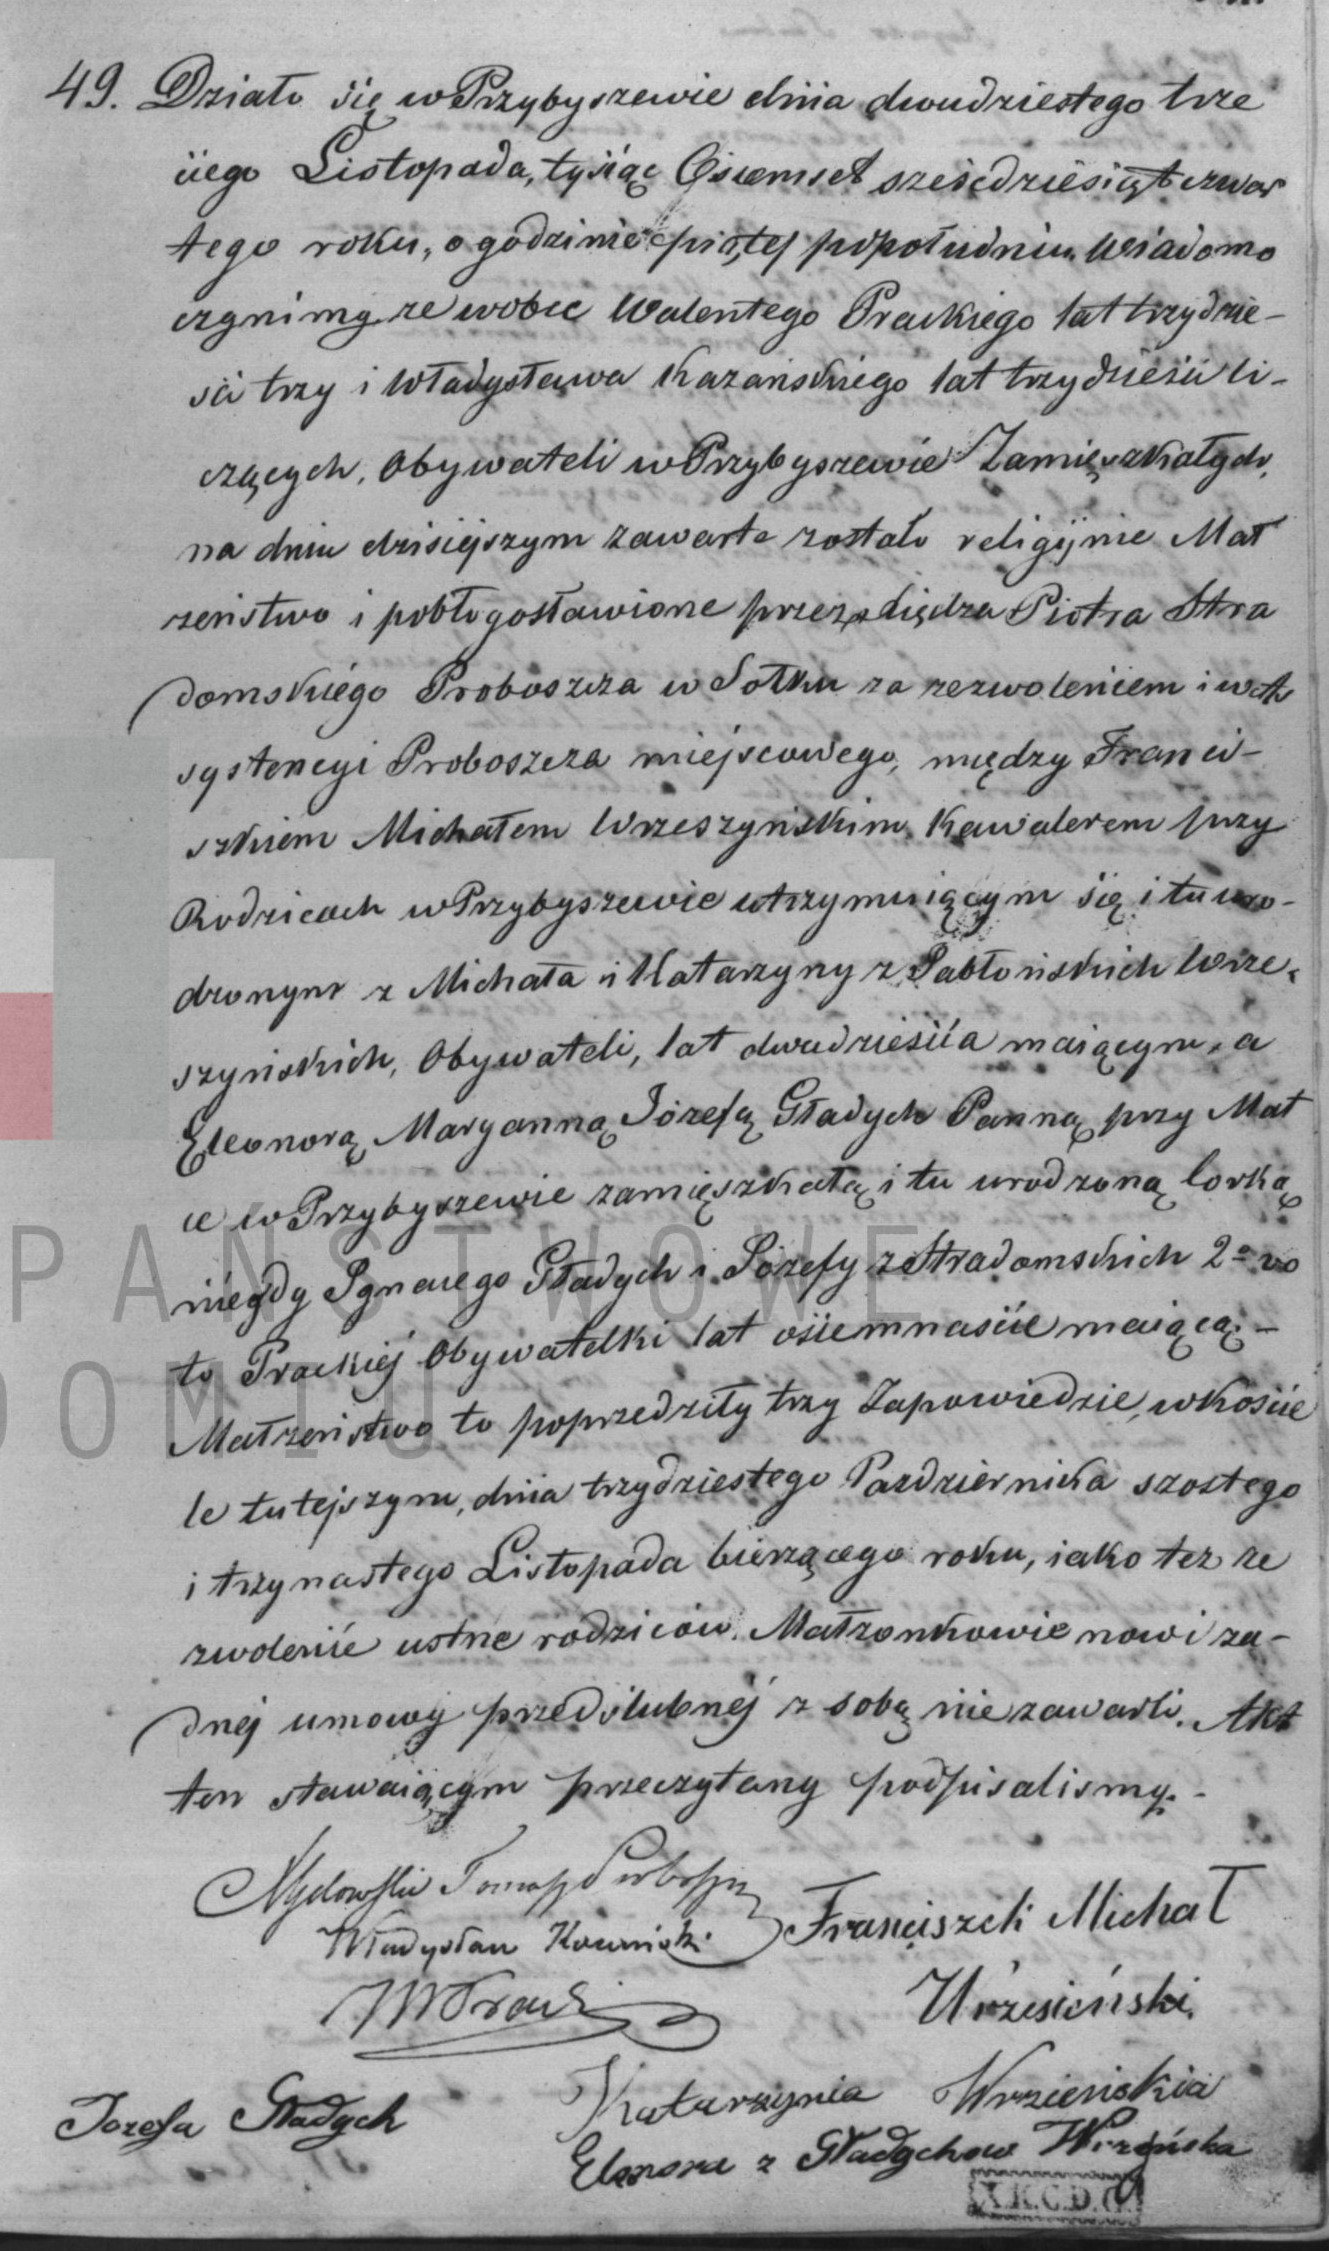 49. Działo się w Przybyszewie dnia dwudziestego trze
ciego Listopada, tysiąc Osiemset sześćdziesiąt czwar
tego roku, o godzinie piątej popołudniu. Wiadomo
czynimy że wobec Walentego Prackiego lat trzydzie-
ści trzy i Władysława Kazańskiego lat trzydzieści li-
czących, Obywateli w Przybyszewie Zamięszkałych,
na dniu dzisiejszym zawarte zostało religijnie Mał
żeństwo i pobłogosławione przez Xiędza Piotra Stra
domskiégo Proboszcza w Sołku za zezwoleniem i w As
systencyi Proboszcza miejscowego, między Franci-
szkiem Michałem Wrzeszyńskim, Kawalerem przy
Rodzicach w Przybyszewie utrzymuiącym się i tu uro-
dzonym z Michała i Katarzyny z Jabłońskich Wrze-
szyńskich, Obywateli, lat dwadzieścia maiącym, a
Eleonorą Maryanną Józefą Gładych Panną przy Mat
ce w Przybyszewie zamięszkałą i tu urodzoną Corką
niégdy Ignacego Gładych i Józefy z Stradomskich 2º vo
to Prackiéj Obywatelki lat ośiemnaście maiącą. -
Małżeństwo to poprzedziły trzy Zapowiedzie, w Koście
le tutejszym, dnia trzydziestego Pazdziernika szostego
i trzynastego Listopada bierzącego roku, iako też ze
zwolenié ustne rodziców. Małżonkowie nowi ża-
dnéj umowy przedślubnéj z sobą nie zawarli. Akt
ten stawaiącym przeczytany podpisalismy. -
Tomasz
Władysław
Franciszek Michał
Wrzesiński
Jozefa Gładych
Katarzynia Wrzieńskia
Eleonora z Gładychow Wrzeńska
X.K.C.D.G.
PAŃSTWOWE
DOMIU